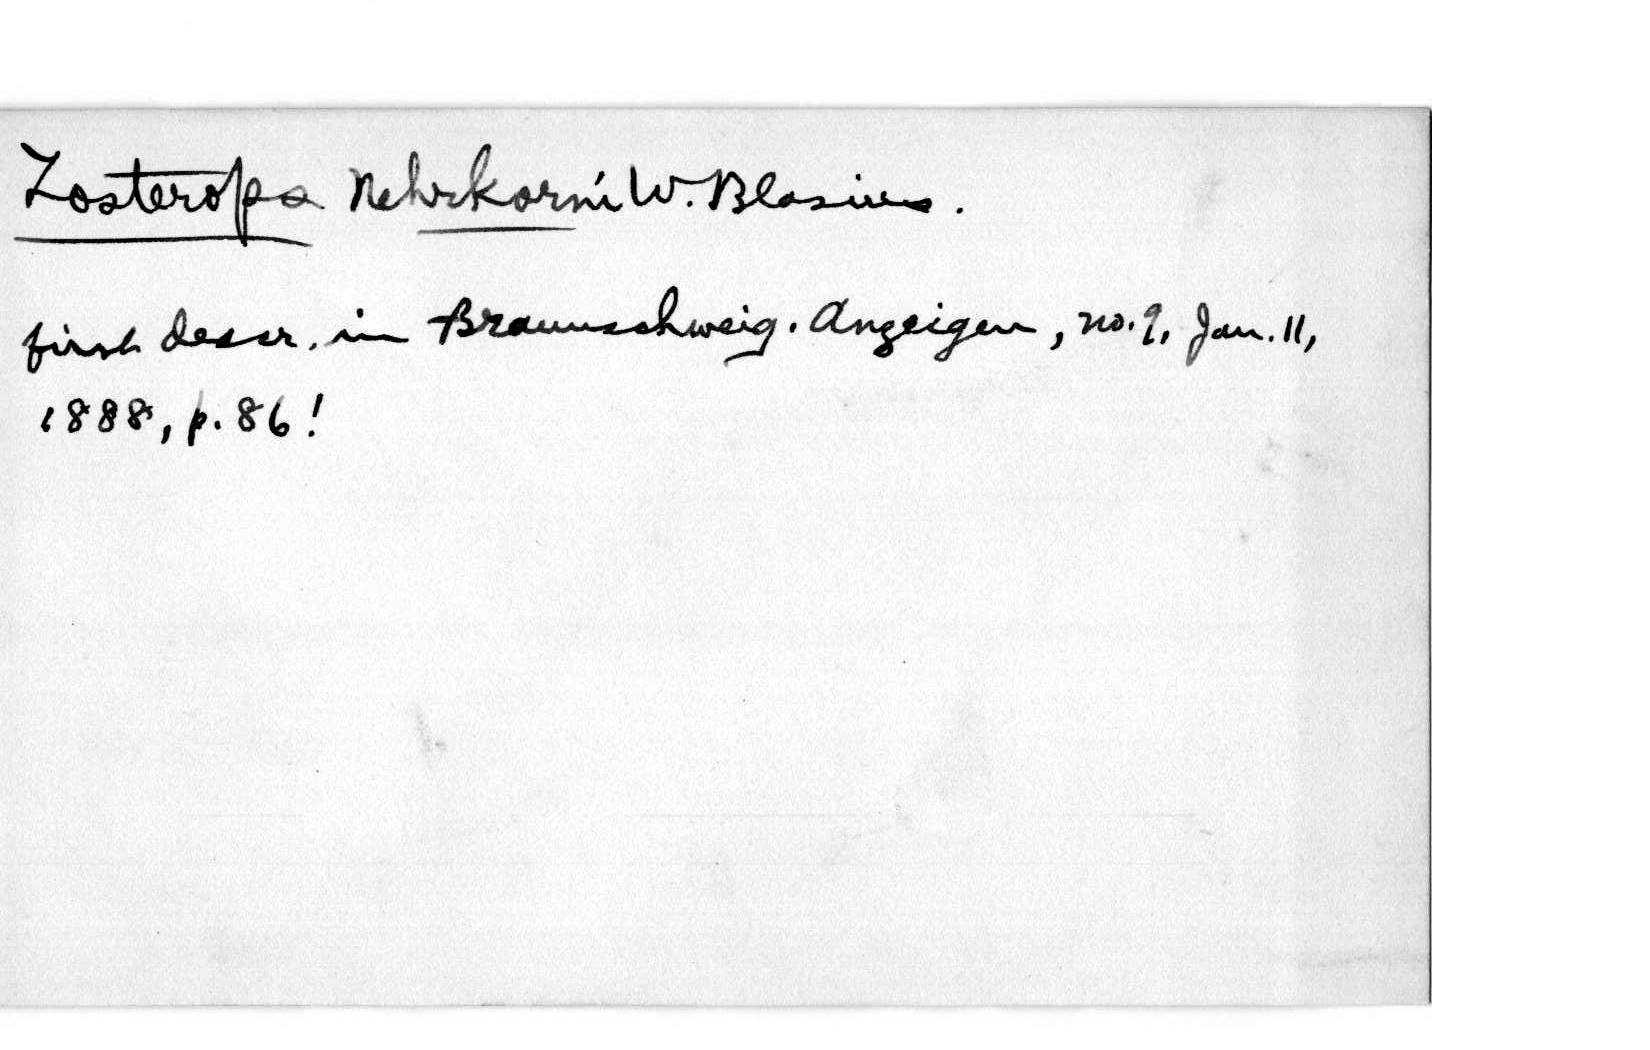 Zosterops Nehrkorni W. Blasius.
first descr. in Braunschweig. Anzeigen, no. 9, Jan. 11,
1888, p. 86!